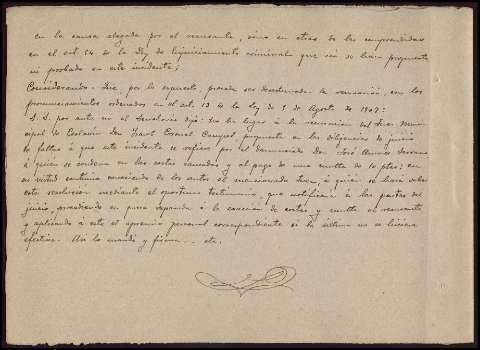 en la causa alegada por el recusante, sino en otras de las comprendidas
en el art. 54 de la Ley de Enjuiciamiento criminal que no se han propuesto
ni probado en este incidente;
Considerando. Que, por lo expuesto, procede ser desestimada la recusación, con los
pronunciamientos ordenados en el art. 13 de la ley de 5 de Agosto de 1907:
S. S. por ante mi el Secretario dijo: No ha lugar á la recusación del Juez Muni-
cipal de Don propuesta en las diligencias de juicio
de faltas á que este incidente se refiere por el denunciado Don José Serrano
á quien se condena en las costas causadas, y al pago de una multa de 10 ptas; en
su virtud continúe conociendo de los autos el mencionado Juez, á quien se hará saber
esta resolución mediante el oportuno testimonio, que notificará á las partes del
juicio, procediendo en pieza separada á la exacción de costas y multa al recusante
y aplicando á este el apremio personal correspondiente si la última no se hiciera
efectiva. Así lo mandó y firma.. etc.